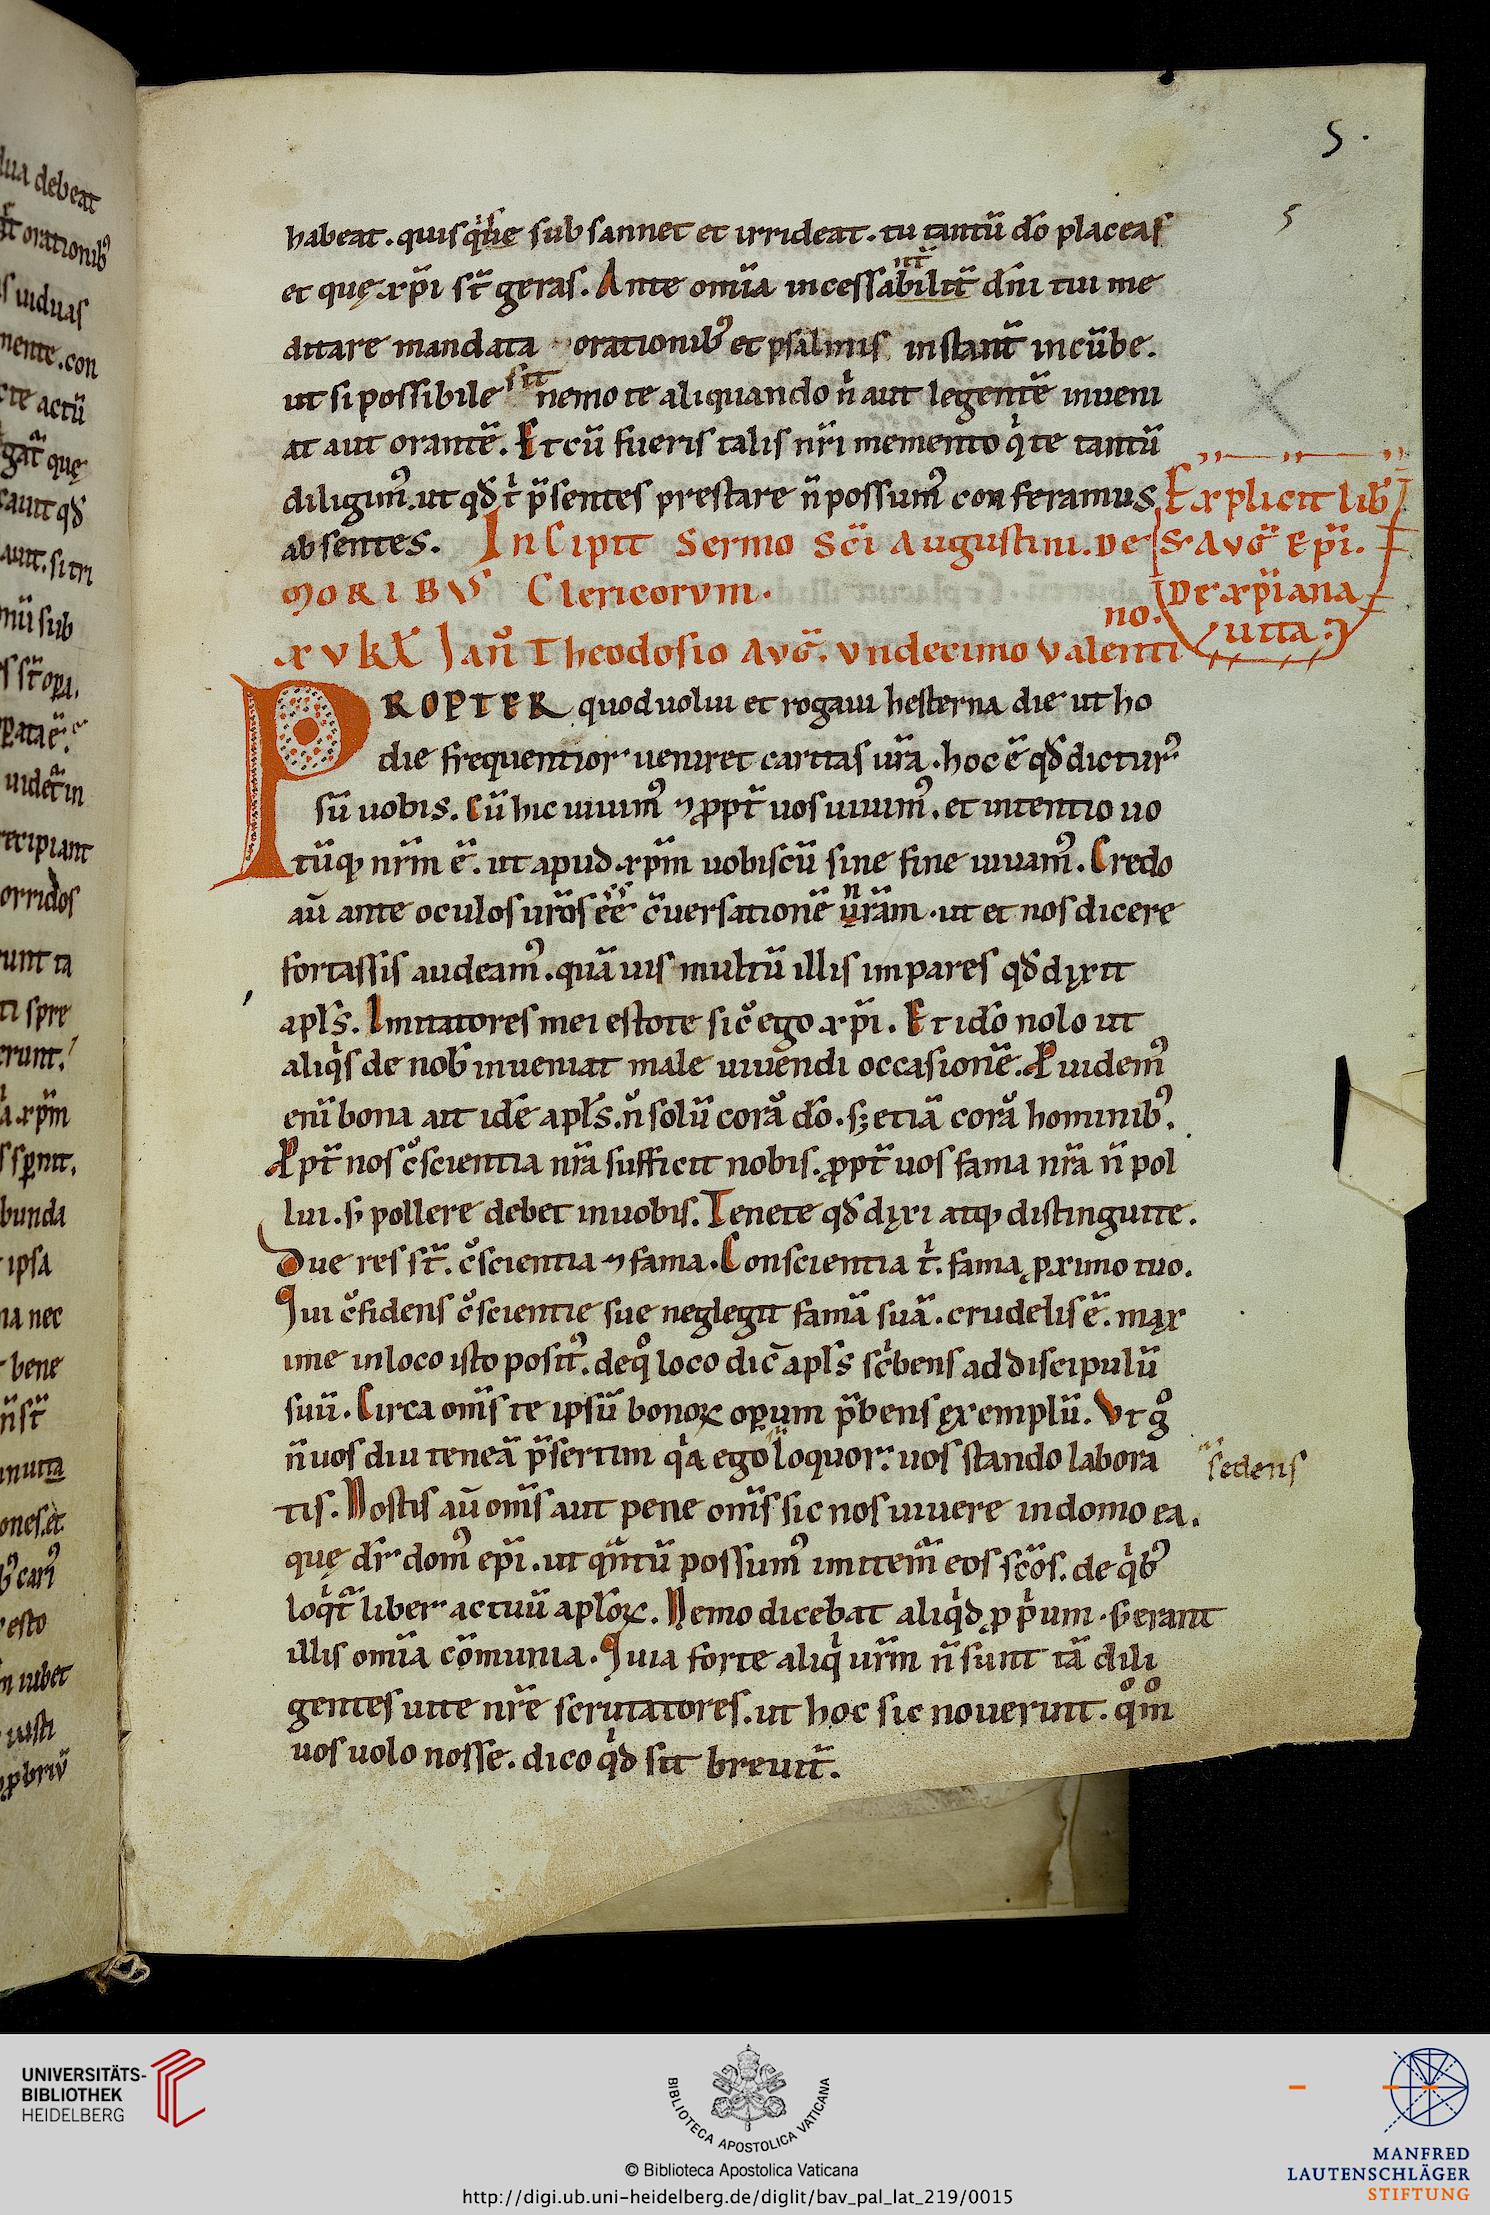 5.
5
habeat. quisq̇ue subsannet et irrideat. tu tantū dō placeas
et quę xp̄i st̄ geras. Ante om̄ia incessabilit̄ dn̄i tui me
ditare mandata orationib⁹ et psalmis instant̄ incūbe.
ut si possibile sit nemo te aliquando n̄ aut legentē inueni
at aut orantē. Et cū fueris talis nr̄i memento q̇ te tantū
diligim⁹. ut qd̄ t̄ p̄sentes prestare n̄ possum⁹ conferamus
absentes. Incipit Sermo Sc̄i Augustini. De
Explicit lib̄
S. Auḡ Ep̄i.
De xp̄iana
uita.
MORIBVS Clericorvm.
xv kł Ian̄ Theodosio Avḡ. vndecimo valenti
no.
PROPTER quod uolui et rogaui hesterna die ut ho
die frequentior ueniret caritas ur̄a. hoc ē qd̄ dictur⁹
sū uobis. Cū hic uiuim⁹ ⁊ ꝓpt̄ uos uiuim⁹. et intentio uo
tūq; nr̄m ē. ut apud xp̄m uobiscū sine fine uiuam⁹. Credo
aū ante oculos ur̄os ēē c̄uersationē ur̄am. ut et nos dicere
fortassis audeam⁹. quāuis multū illis impares qd̄ dixit
apl̄s. Imitatores mei estote sic̄ ego xp̄i. Et idō nolo ut
aliq̇s de nob̄ inueniat male uiuendi occasionē. Ꝓuidem⁹
enī bona ait idē apl̄s. n̄ solū corā dō. sꝫ etiā corā hominib⁹.
Ꝓpt̄ nos c̄scientia nr̄a sufficit nobis. ꝓpt̄ uos fama nr̄a n̄ pol
lui. s; pollere debet in uobis. Tenete qd̄ dixi atq; distinguite.
Due res st̄. c̄scientia ⁊ fama. Conscientia t̄. fama ꝓximo tuo.
Qui c̄fidens c̄scientie sue neglegit famā suā. crudelis ē. max
ime in loco isto posit⁹. de q̊ loco dic̄ apl̄s sc̄bens ad discipulū
suū. Circa om̄s te ipsū bonoꝝ opum p̄bens exemplū. Vt g̊
n̄ uos diu teneā p̄sertim q̇a ego loquor. uos stando labora
sedens
tis. Nostis aū om̄s aut pene om̄s sic nos uiuere in domo ea.
quę dr̄ dom⁹ ep̄i. ut qn̄tū possum⁹ imitem̄ eos sc̄os. de q̇b⁹
loq̇t̄ liber actuū apl̄oꝝ. Nemo dicebat aliq̇d ꝓṗum. s; erant
illis om̄ia cōmunia. Quia forte aliq̇ ur̄m n̄ sunt tā dili
gentes uite nr̄e scrutatores. ut hoc sic nouerint. q̊m̊
uos uolo nosse. dico q̇d sit breuit̄.
UNIVERSITÄTS-
BIBLIOTHEK
HEIDELBERG
BIBLIOTECA APOSTOLICA VATICANA
© Biblioteca Apostolica Vaticana
http://digi.ub.uni-heidelberg.de/diglit/bav_pal_lat_219/0015
MANFRED
LAUTENSCHLÄGER
STIFTUNG